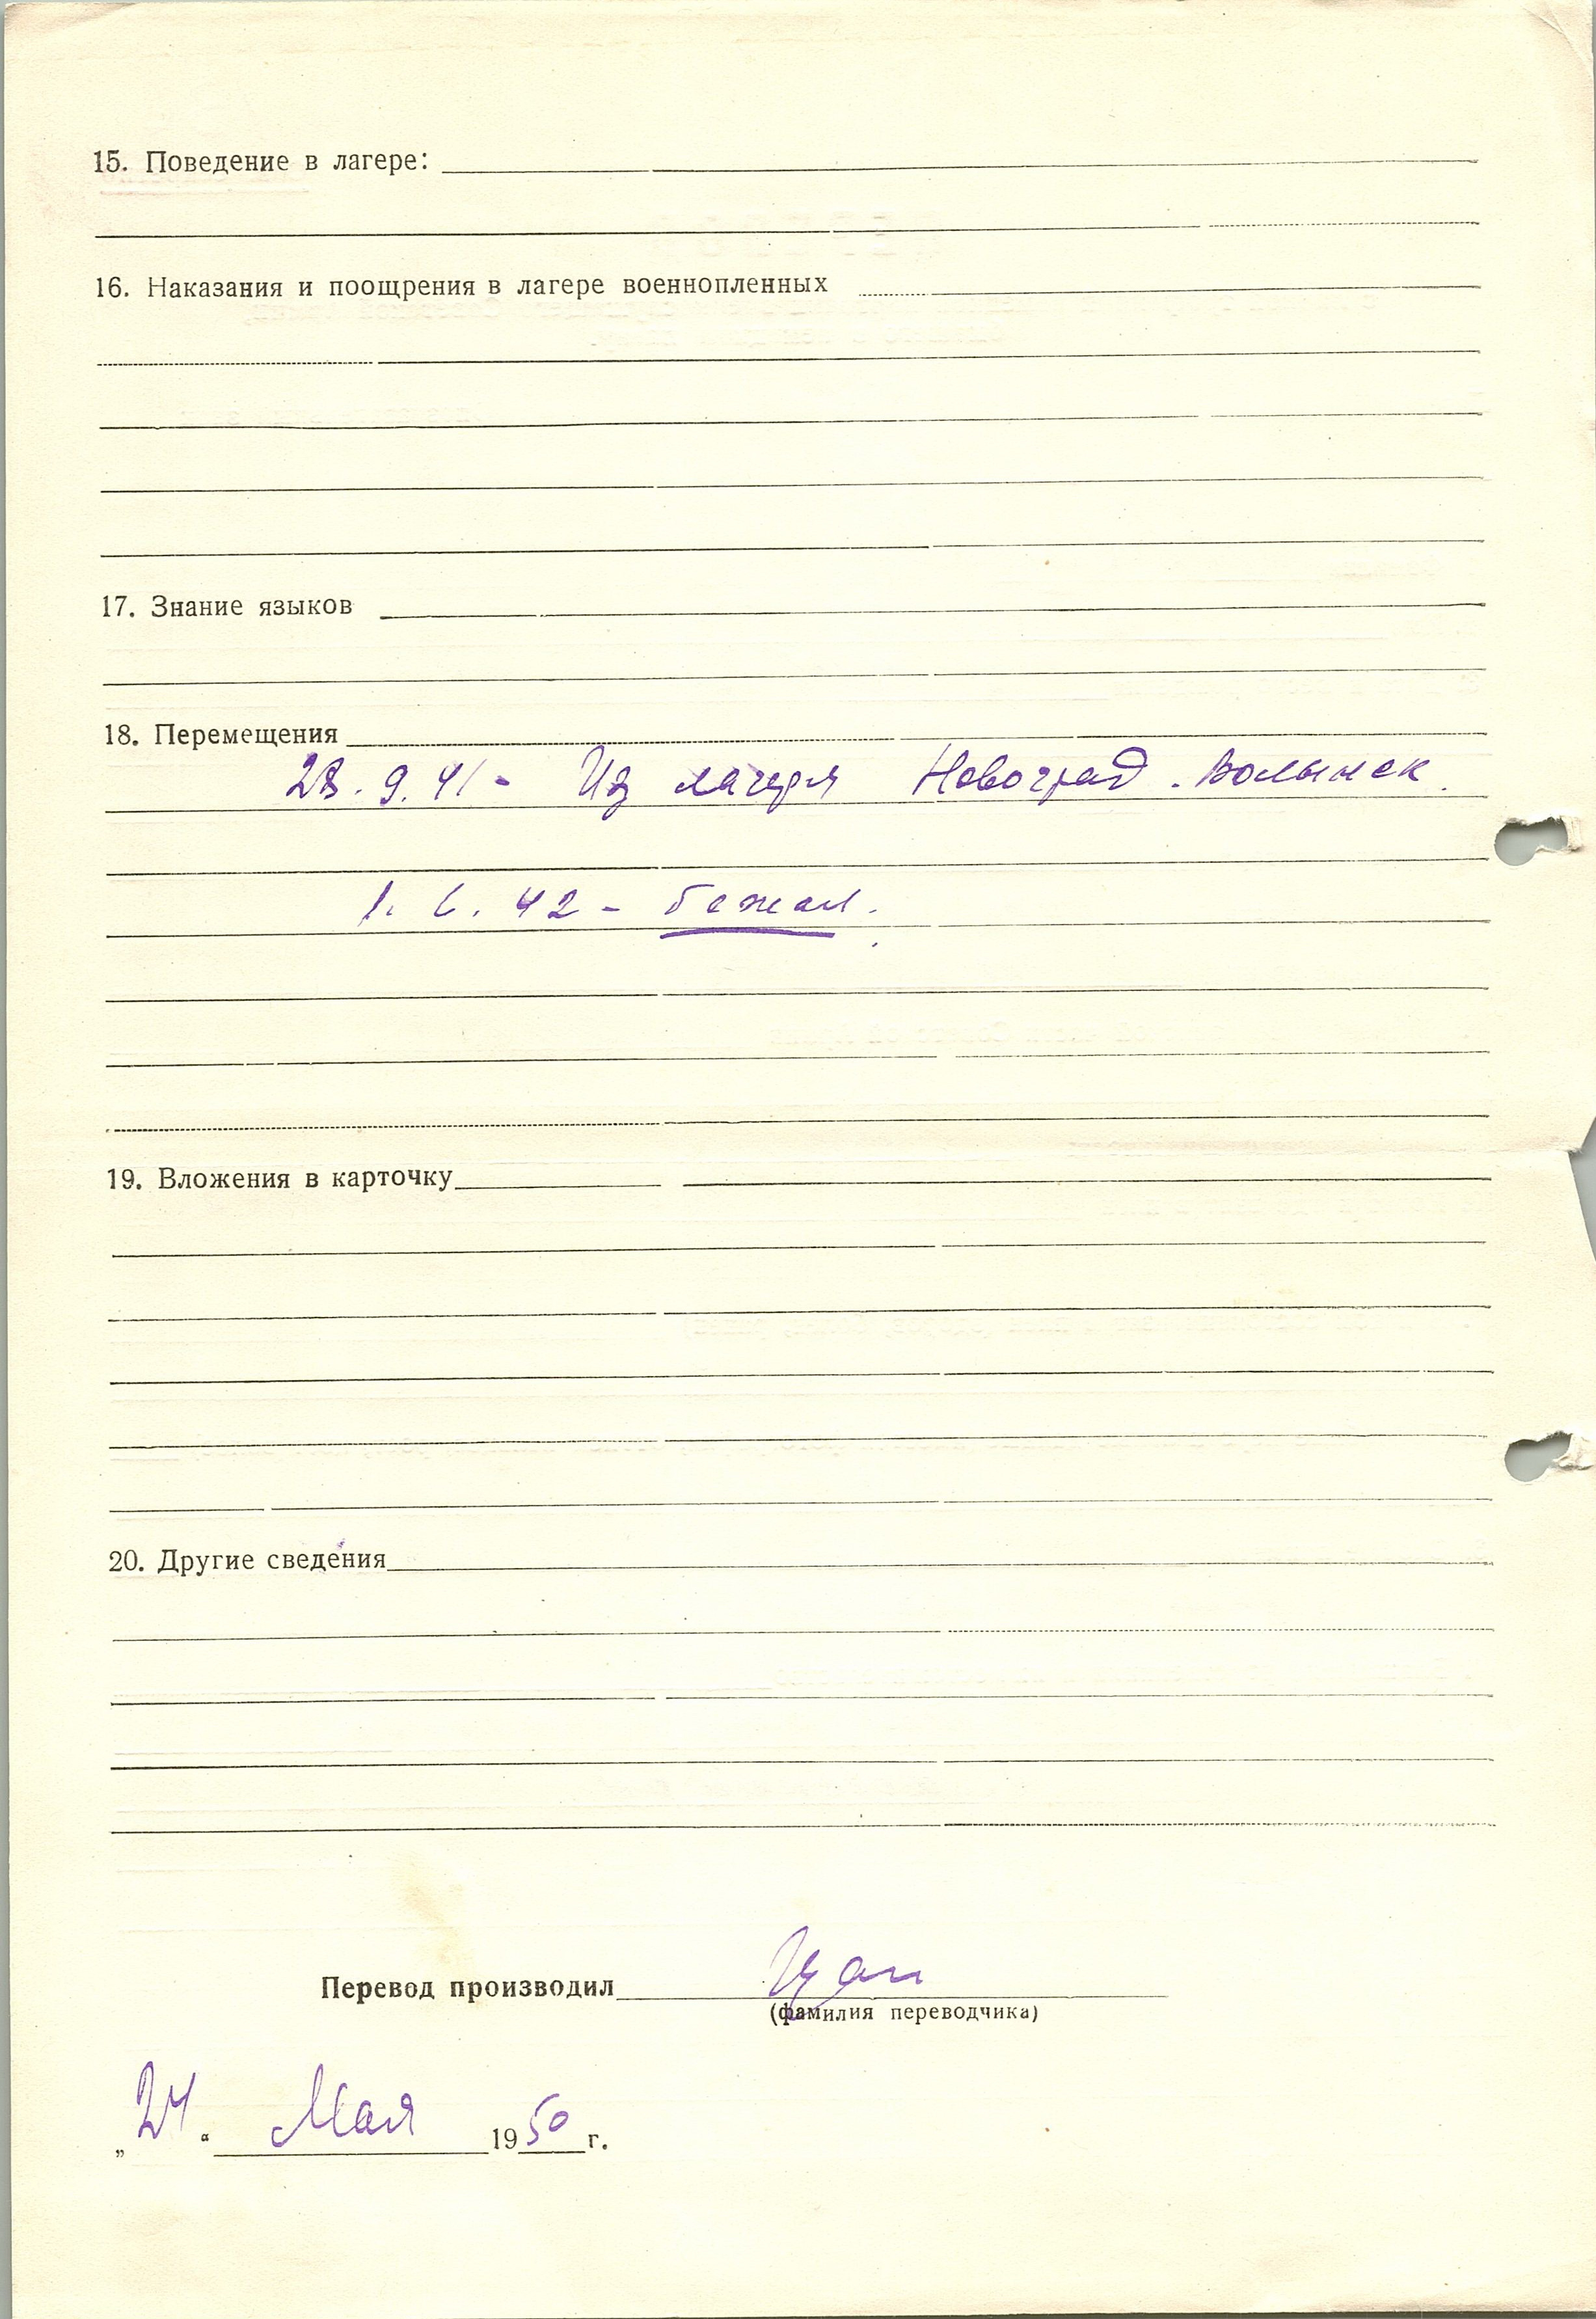 15. Поведение в лагере:
16. Наказания и поощрения в лагере военнопленных
17. Знание языков
18. Перемещения
28. 9. 41 - Из лагеря Новоград-Волынск.
1. 6. 42 - бежал.
19. Вложения в карточку
20. Другие сведения
Перевод производил
(фамилия переводчика)
„24“ Мая 1950 г.